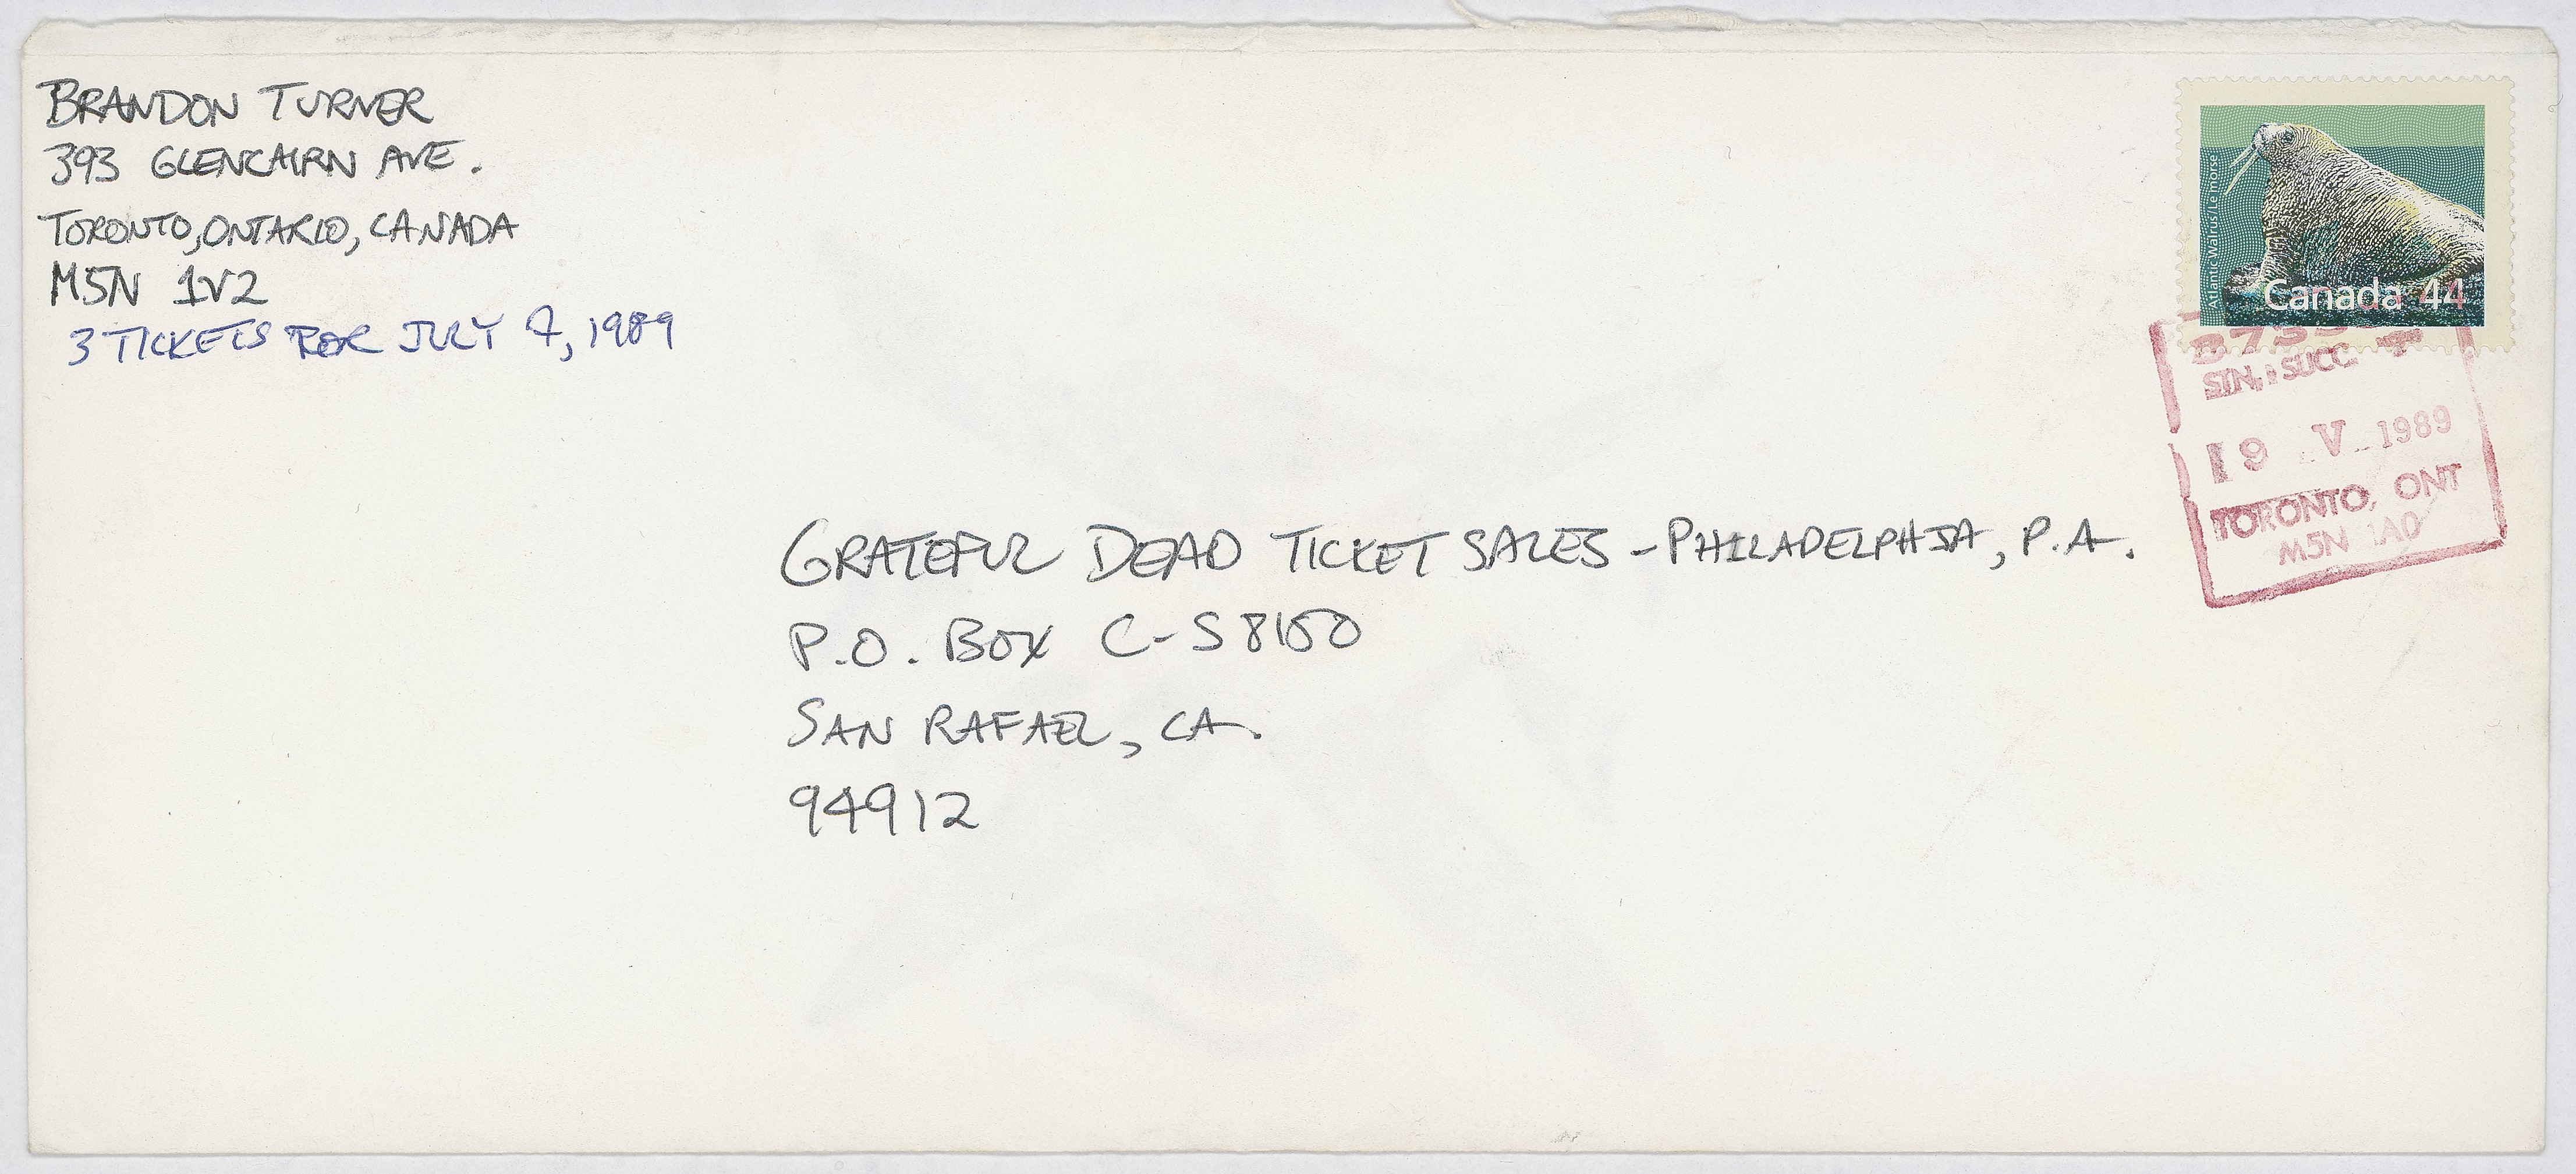 BRANDON TURNER
393 GLENCAIRN AVE.
TORONTO, ONTARIO, CANADA
M5N 1V2
3 TICKETS FOR JULY 7, 1989
Atlantic Walrus / Le morse
Canada 44
STN. SUCC.
19 V 1989
TORONTO, ONT
M5N 1A0
GRATEFUL DEAD TICKET SALES - PHILADELPHIA, P.A.
P.O. BOX C-S 8150
SAN RAFAEL, CA.
94912